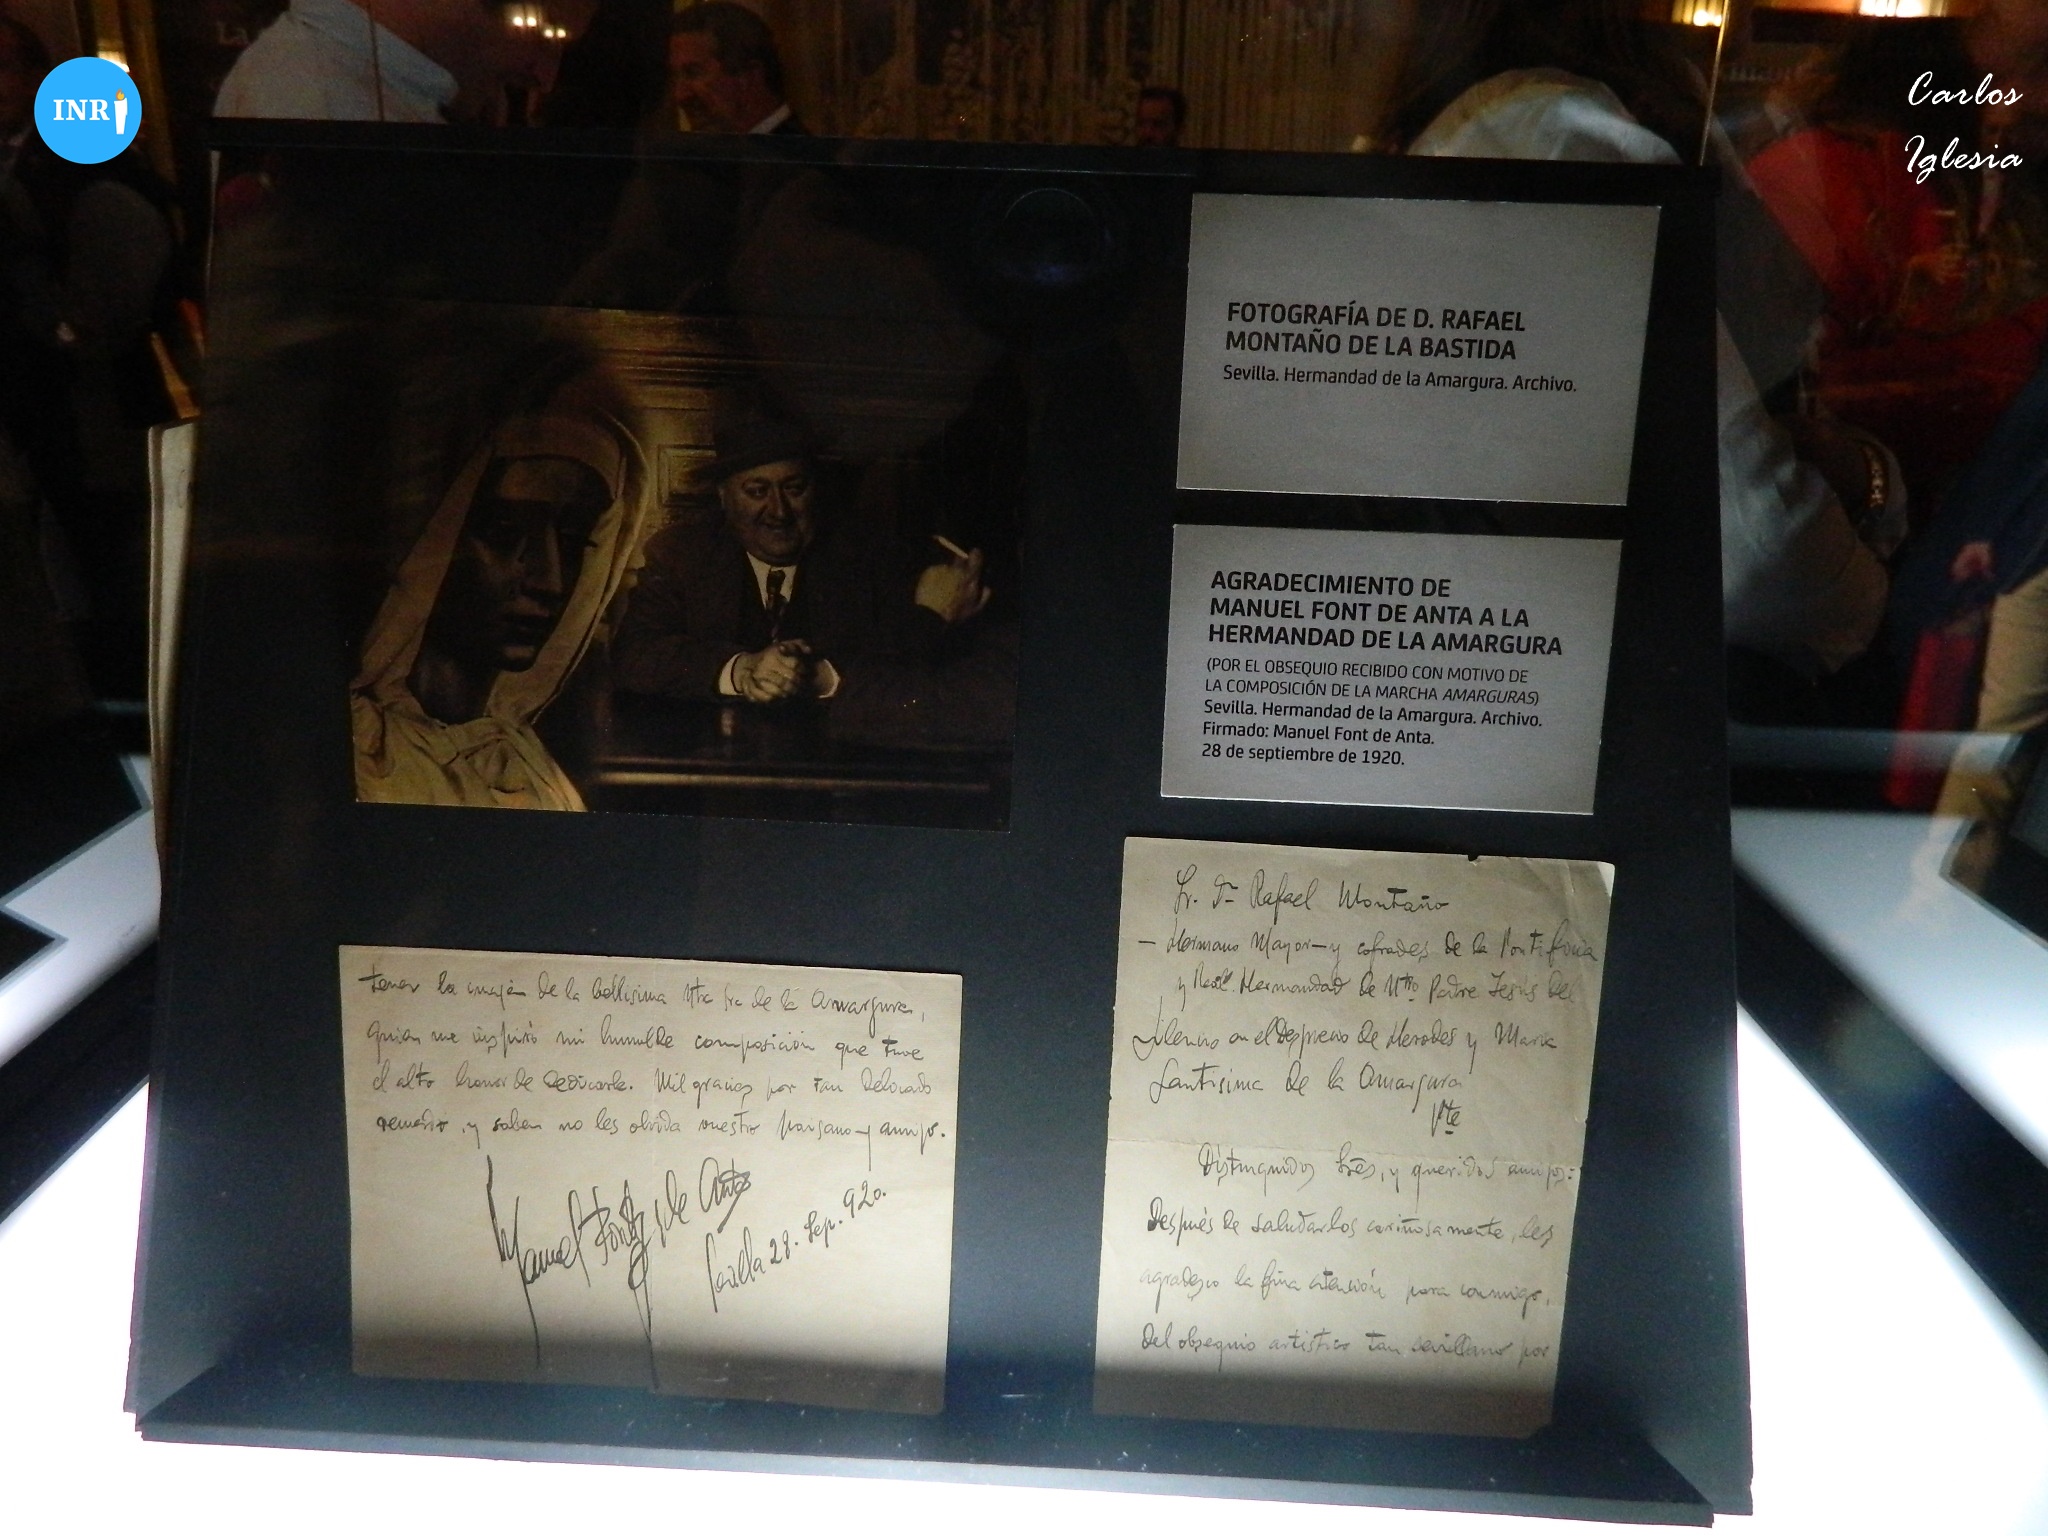 INRI
Carlos
Iglesia
FOTOGRAFÍA DE D. RAFAEL
MONTAÑO DE LA BASTIDA
Sevilla. Hermandad de la Amargura. Archivo.
AGRADECIMIENTO DE
MANUEL FONT DE ANTA A LA
HERMANDAD DE LA AMARGURA
(POR EL OBSEQUIO RECIBIDO CON MOTIVO DE
LA COMPOSICIÓN DE LA MARCHA AMARGURAS)
Sevilla. Hermandad de la Amargura. Archivo.
Firmado: Manuel Font de Anta.
28 de septiembre de 1920.
Sr. Dn Rafael Montaño
- Hermano Mayor - y cofrades de la Pontificia
y Real Hermandad de Ntro Padre Jesús del
Silencio en el desprecio de Herodes y María
Santisima de la Amargura
Pte
Distinguidos Sres, y queridos amigos:
Después de saludarlos cariñosamente, les
agradezco la fina atención para conmigo,
del obsequio artistico tan sevillano por
tener la imajen de la bellisima Ntra Sra de la Amargura,
quien me inspiró mi humilde composición que tuve
el alto honor de dedicarle. Mil gracias por tan delicado
recuerdo, y saben no les olvida vuestro paisano y amigo.
Manuel Font de Anta
Sevilla 28. Sep. 920.